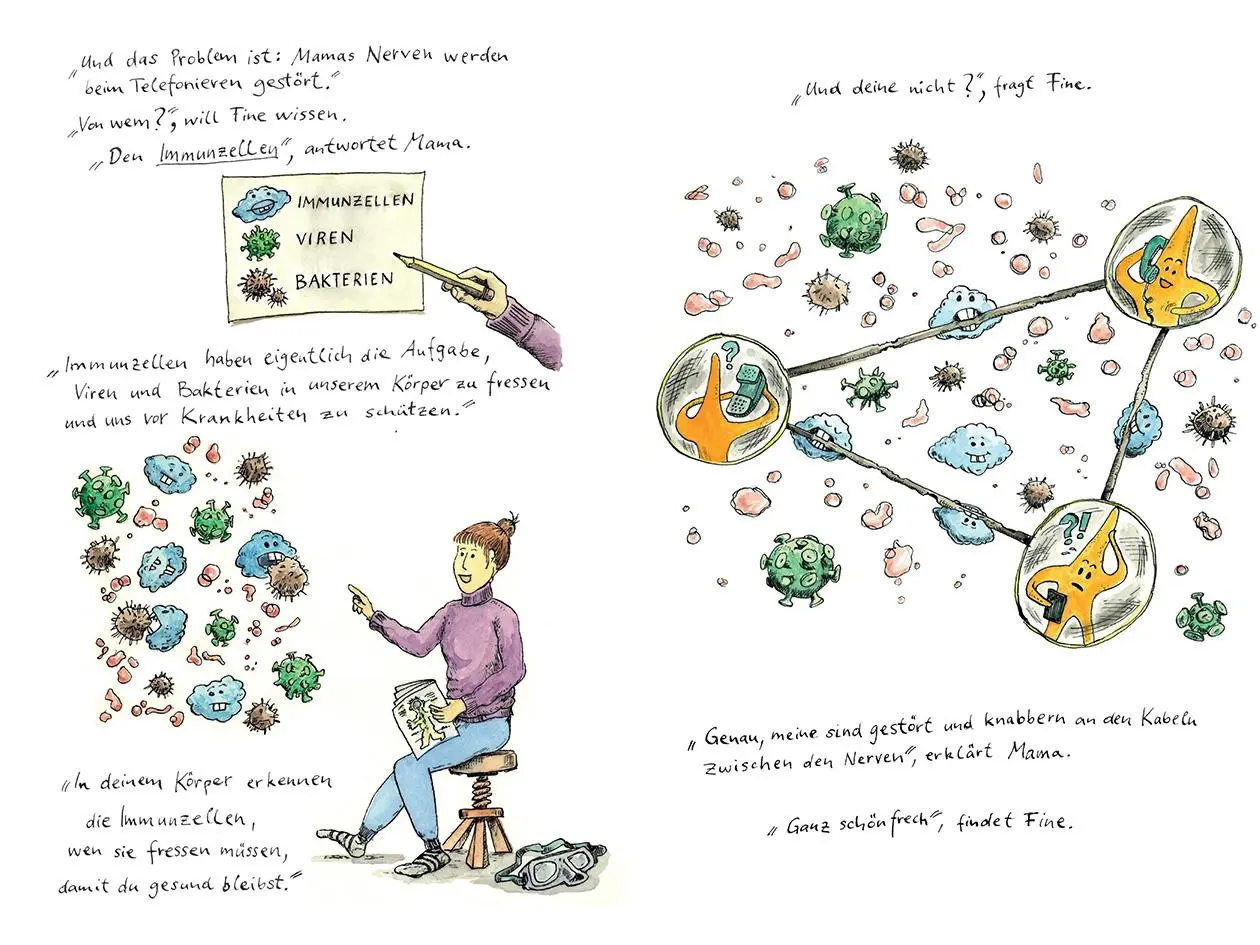 „Und das Problem ist: Mamas Nerven werden
beim Telefonieren gestört.“
„Von wem?“, will Fine wissen.
„Den Immunzellen“, antwortet Mama.
IMMUNZELLEN
VIREN
BAKTERIEN
„Immunzellen haben eigentlich die Aufgabe,
Viren und Bakterien in unserem Körper zu fressen
und uns vor Krankheiten zu schützen.“
„In deinem Körper erkennen
die Immunzellen,
wen sie fressen müssen,
damit du gesund bleibst.“
„Und deine nicht?“, fragt Fine.
?
?!
„Genau, meine sind gestört und knabbern an den Kabeln
zwischen den Nerven“, erklärt Mama.
„Ganz schön frech“, findet Fine.